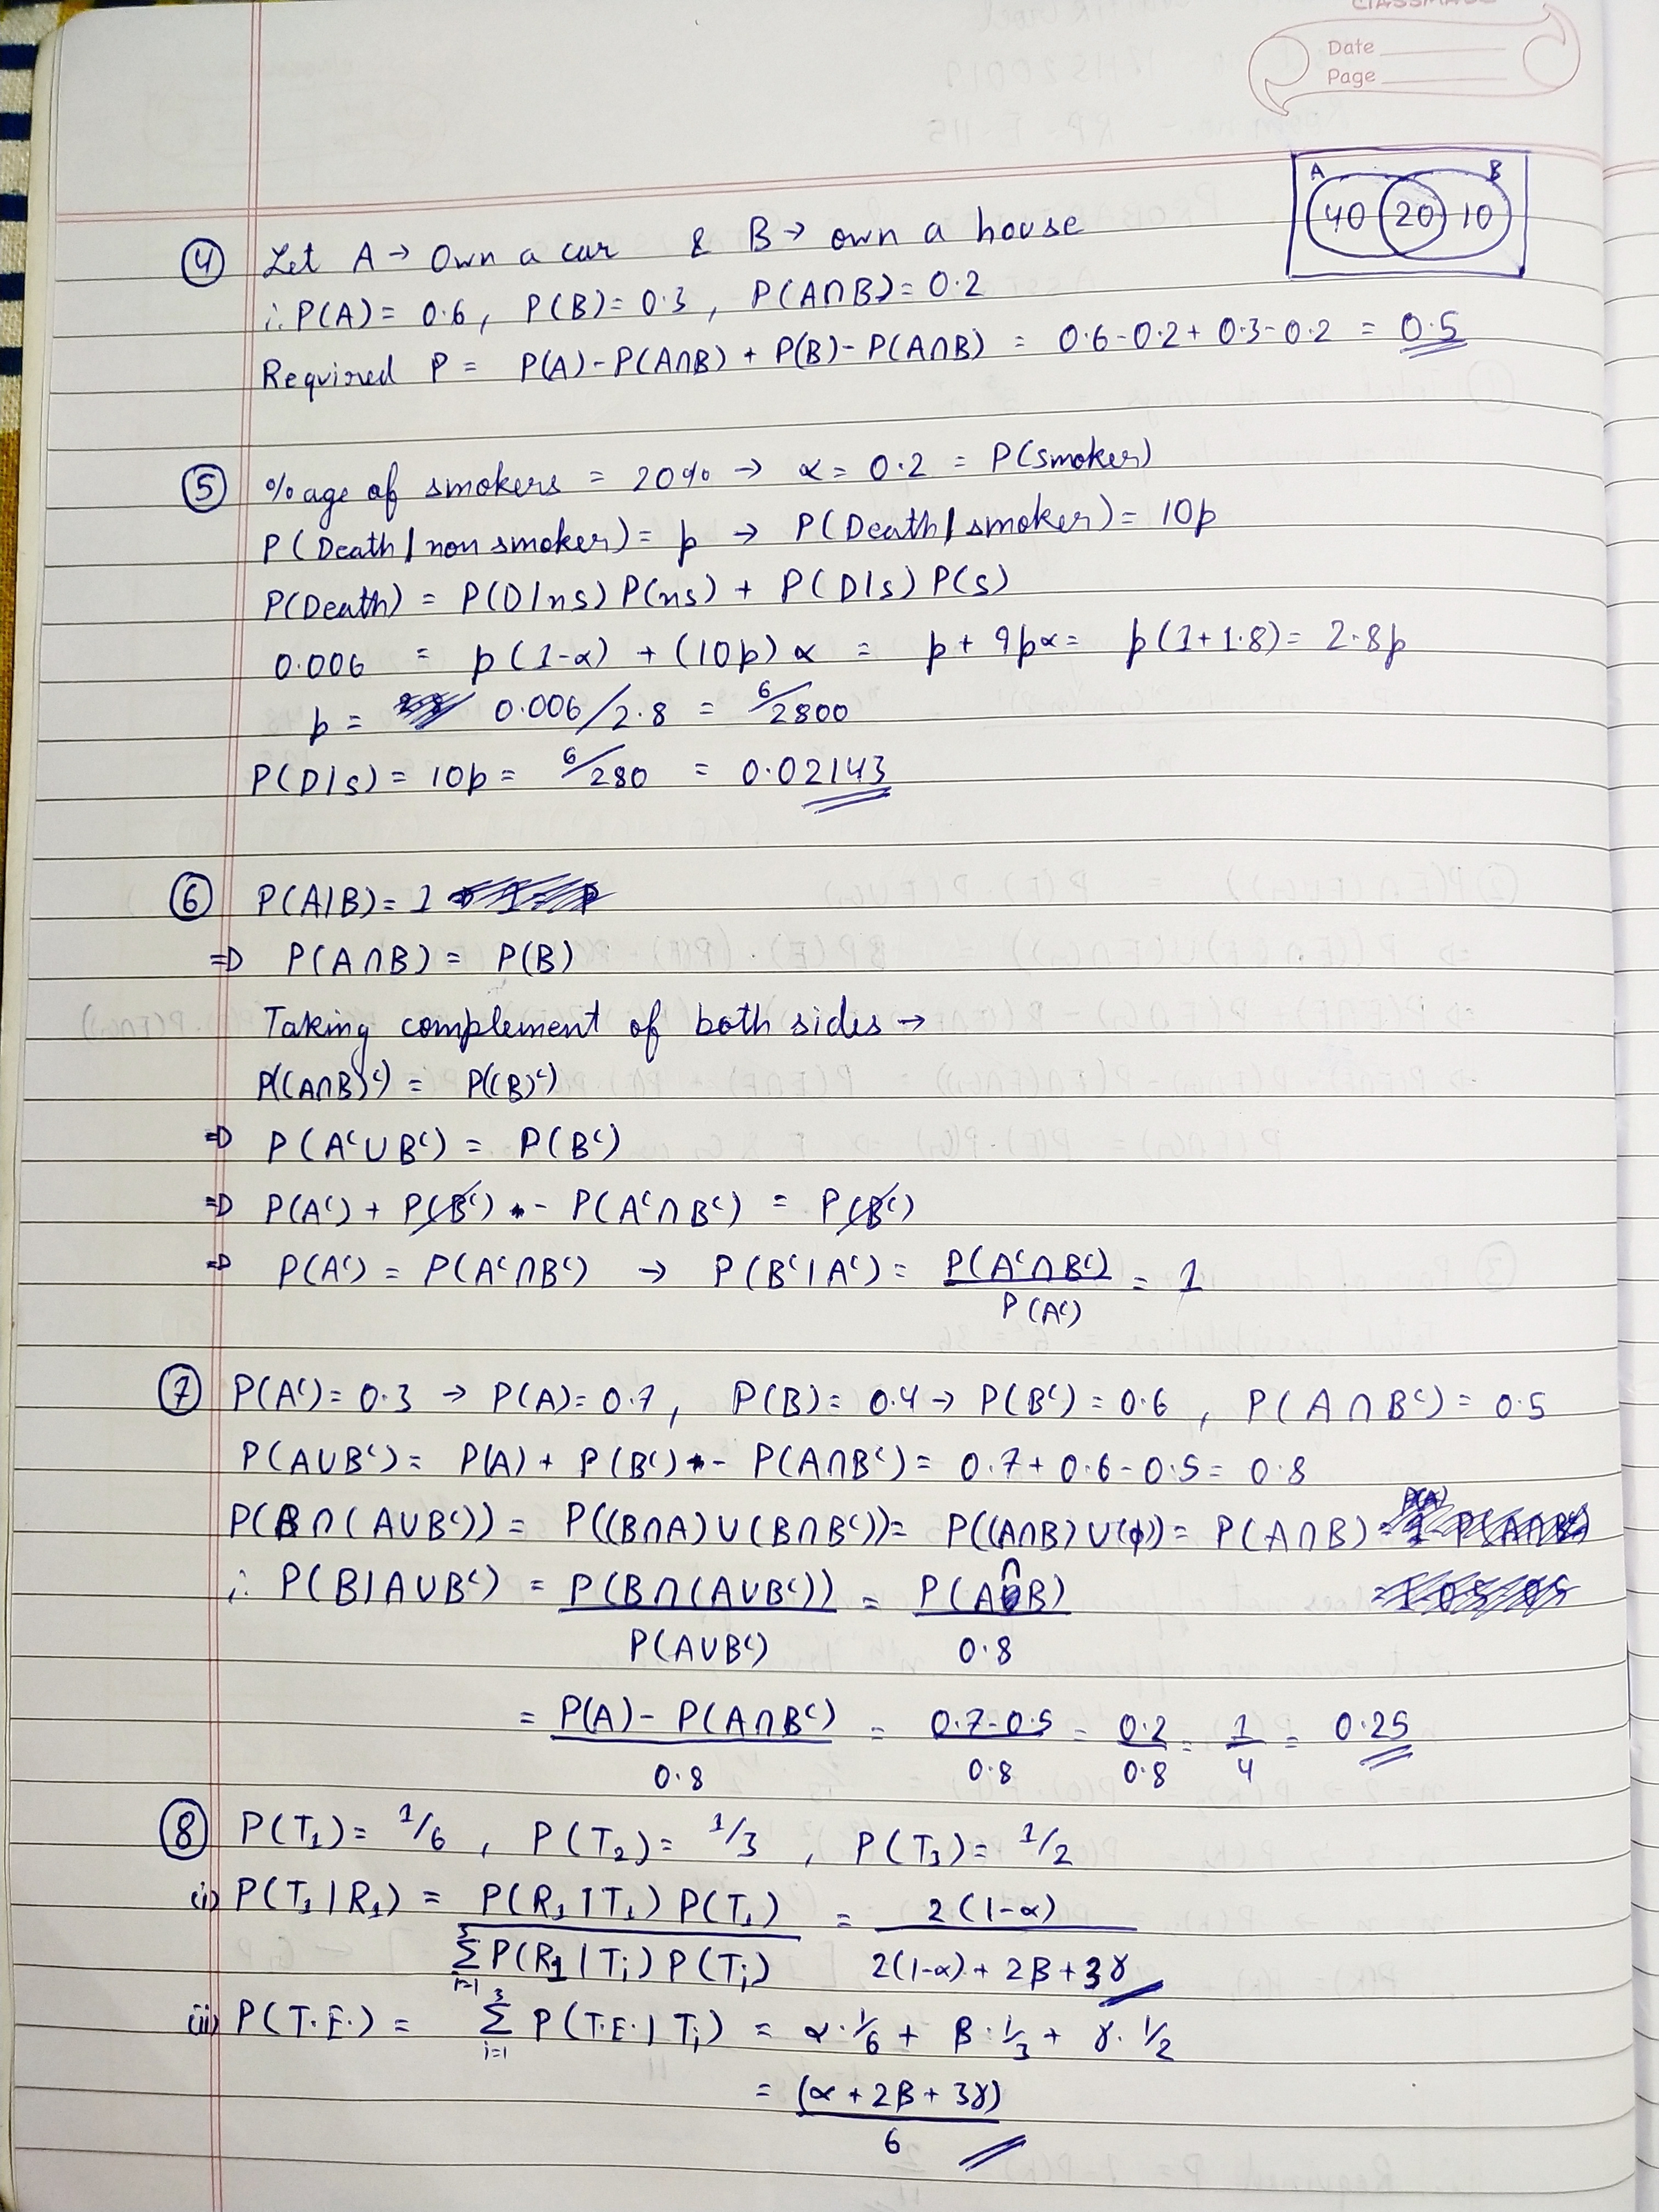 CLASSMATE
Date
Page
A B
40 20 10
④ Let A → Own a car & B → own a house
∴ P(A) = 0.6, P(B) = 0.3, P(A∩B) = 0.2
Required P = P(A) - P(A∩B) + P(B) - P(A∩B) = 0.6 - 0.2 + 0.3 - 0.2 = 0.5
⑤ %age of smokers = 20% → α = 0.2 = P(smoker)
P(Death | non smoker) = p → P(Death | smoker) = 10p
P(Death) = P(D|ns) P(ns) + P(D|s) P(s)
0.006 = p(1-α) + (10p)α = p + 9pα = p(1+1.8) = 2.8p
p = 0.006/2.8 = 6/2800
P(D|s) = 10p = 6/280 = 0.02143
⑥ P(A|B) = 1
⇒ P(A∩B) = P(B)
Taking complement of both sides →
P((A∩B)ᶜ) = P((B)ᶜ)
⇒ P(Aᶜ∪Bᶜ) = P(Bᶜ)
⇒ P(Aᶜ) + P(Bᶜ) - P(Aᶜ∩Bᶜ) = P(Bᶜ)
⇒ P(Aᶜ) = P(Aᶜ∩Bᶜ) → P(Bᶜ|Aᶜ) = P(Aᶜ∩Bᶜ)/P(Aᶜ) = 1
⑦ P(Aᶜ) = 0.3 → P(A) = 0.7, P(B) = 0.4 → P(Bᶜ) = 0.6, P(A∩Bᶜ) = 0.5
P(A∪Bᶜ) = P(A) + P(Bᶜ) - P(A∩Bᶜ) = 0.7 + 0.6 - 0.5 = 0.8
P(B∩(A∪Bᶜ)) = P((B∩A)∪(B∩Bᶜ)) = P((A∩B)∪(ϕ)) = P(A∩B)
∴ P(B|A∪Bᶜ) = P(B∩(A∪Bᶜ))/P(A∪Bᶜ) = P(A∩B)/0.8
= P(A) - P(A∩Bᶜ)/0.8 = 0.7-0.5/0.8 = 0.2/0.8 = 1/4 = 0.25
⑧ P(T₁) = 1/6, P(T₂) = 1/3, P(T₃) = 1/2
(i) P(T₁|R₁) = P(R₁|T₁) P(T₁)/∑ᵢ₌₁³ P(R₁|Tᵢ) P(Tᵢ) = 2(1-α)/2(1-α) + 2β + 3γ
(ii) P(T.E.) = ∑ᵢ₌₁³ P(T.E.|Tᵢ) = α.1/6 + β.1/3 + γ.1/2
= (α + 2β + 3γ)/6